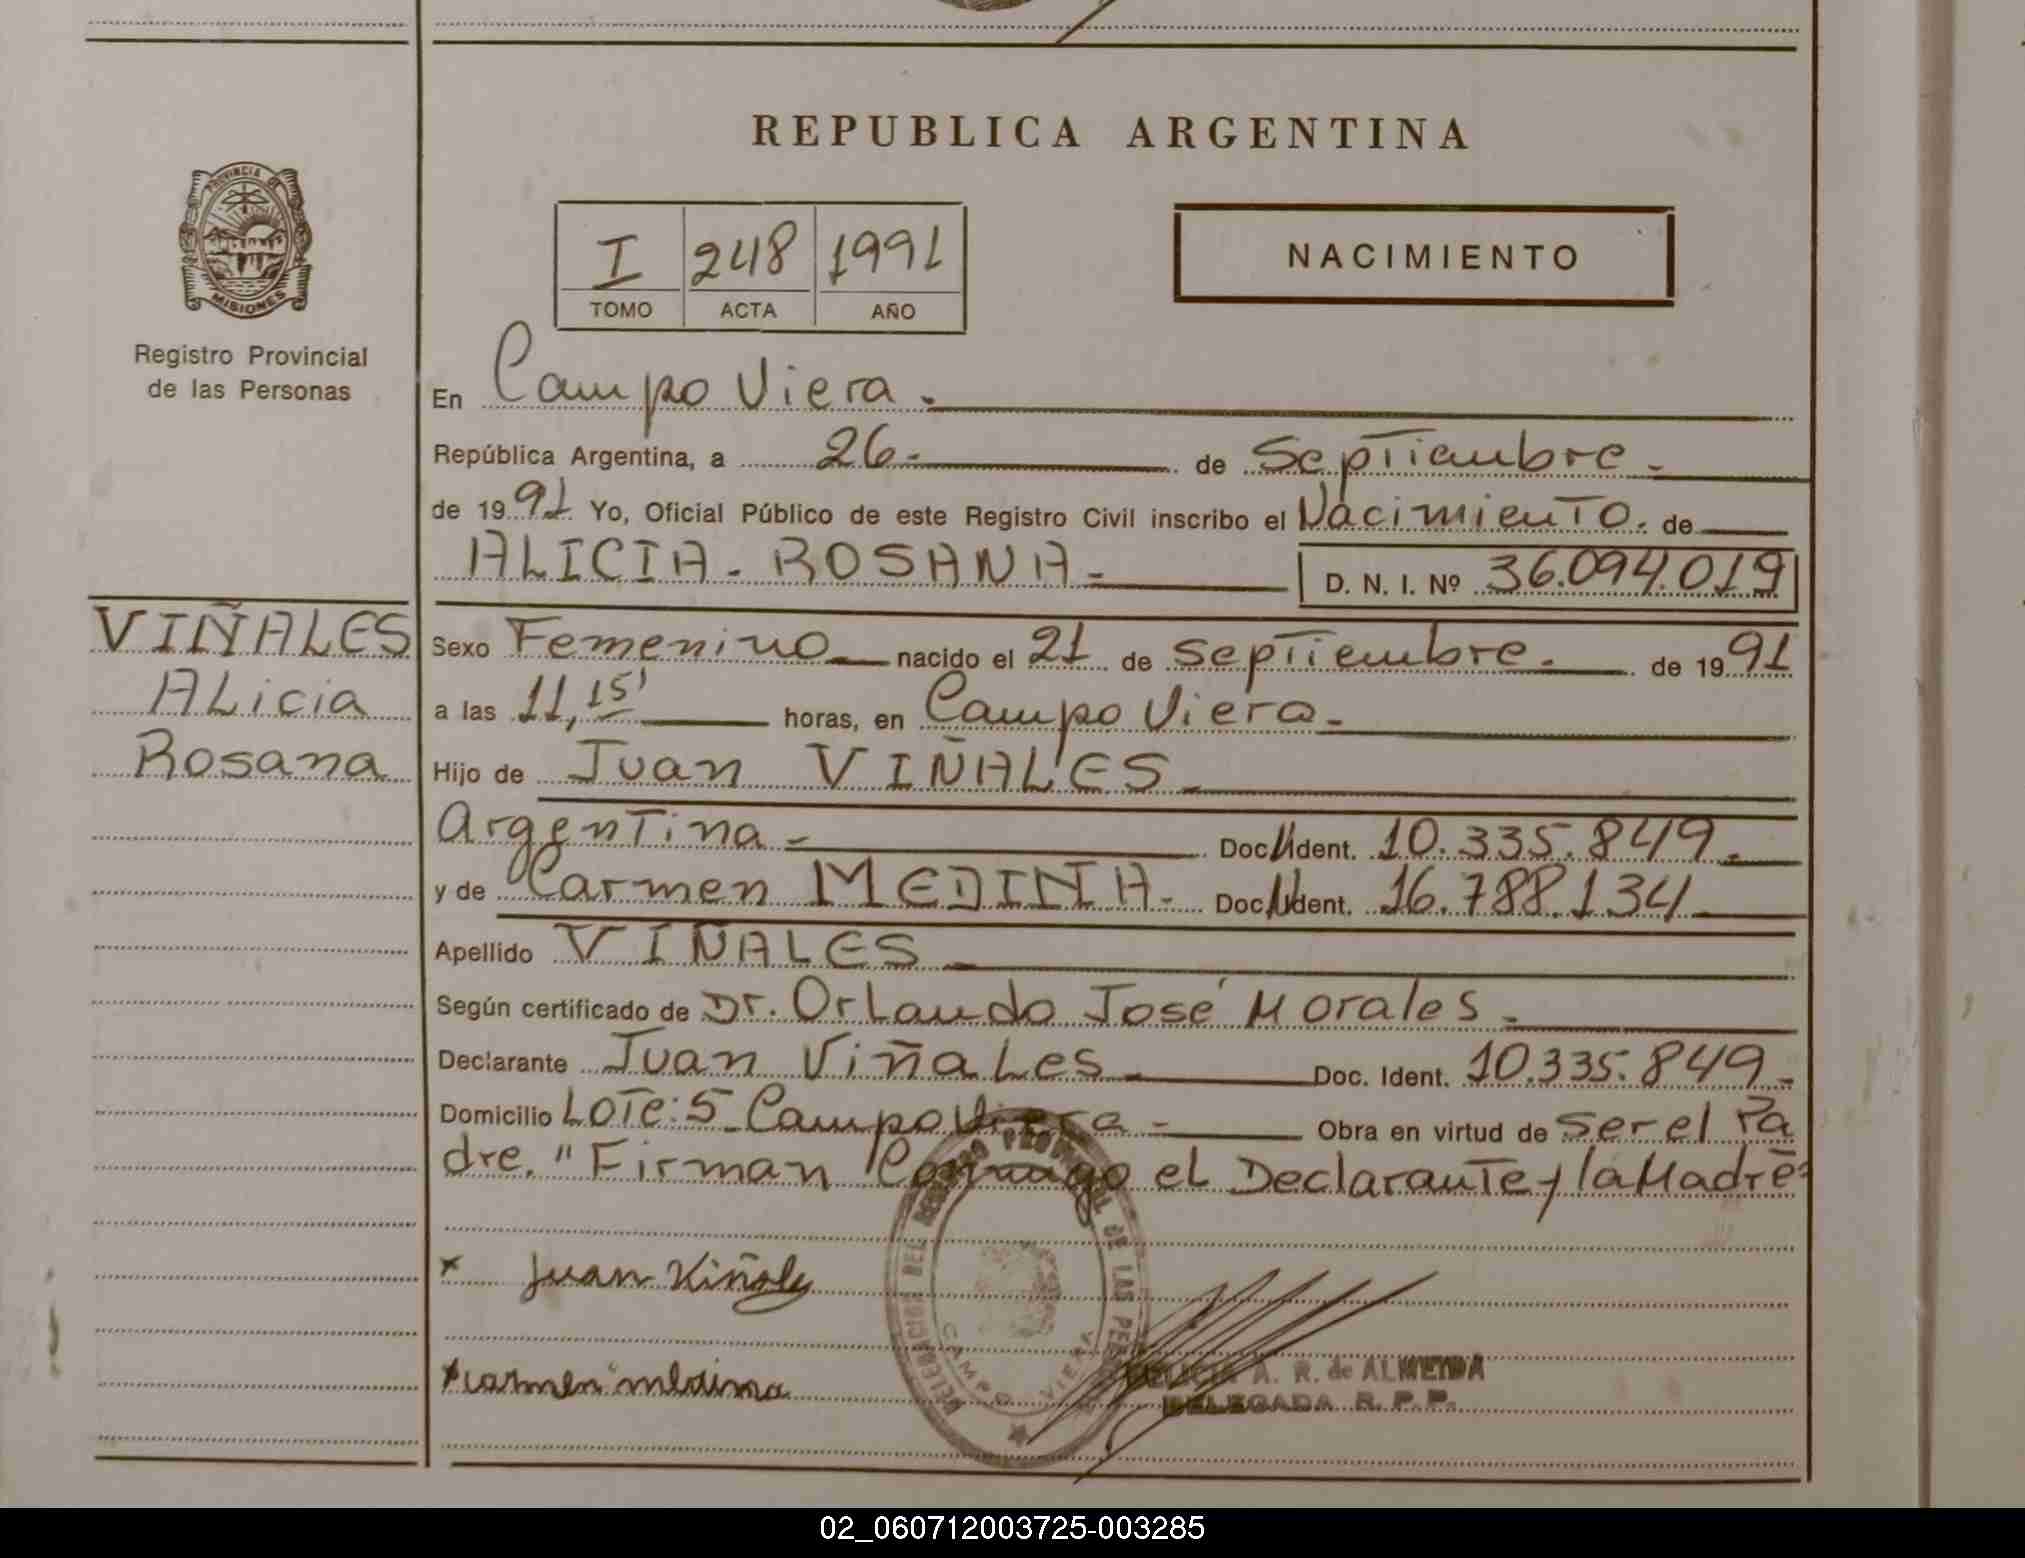 REPUBLICA ARGENTINA
PROVINCIA DE
MISIONES
Registro Provincial
de las Personas
I 248 1991
TOMO ACTA AÑO
NACIMIENTO
En Campo Viera.
República Argentina, a 26- de Septiembre.
de 1991 Yo, Oficial Público de este Registro Civil inscribo el Nacimiento. de
ALICIA - ROSANA- D. N. I. Nº 36.094.019
VIÑALES
ALicia
Rosana
Sexo Femenino nacido el 21 de septiembre. de 1991
a las 11,15' horas, en Campo Viera.
Hijo de Juan VIÑALES
Argentina- Doc. Ident. 10.335.849.
y de Carmen MEDINA. Doc. Ident. 16.788.134
Apellido VIÑALES
Según certificado de Dr. Orlando José Morales.
Declarante Juan ViñaLes Doc. Ident. 10.335.849.
Domicilio LOTE: 5 Campo Viera - Obra en virtud de ser el Pa
dre. "Firman Conmigo el Declarante y la Madre
x Juan Viñales
x carmen medina
DELEGACION DEL REGISTRO PROVINCIAL DE LAS PER
CAMPO VIERA
FELICIA A. R. de ALMEIDA
DELEGADA R. P. P.
02_060712003725-003285